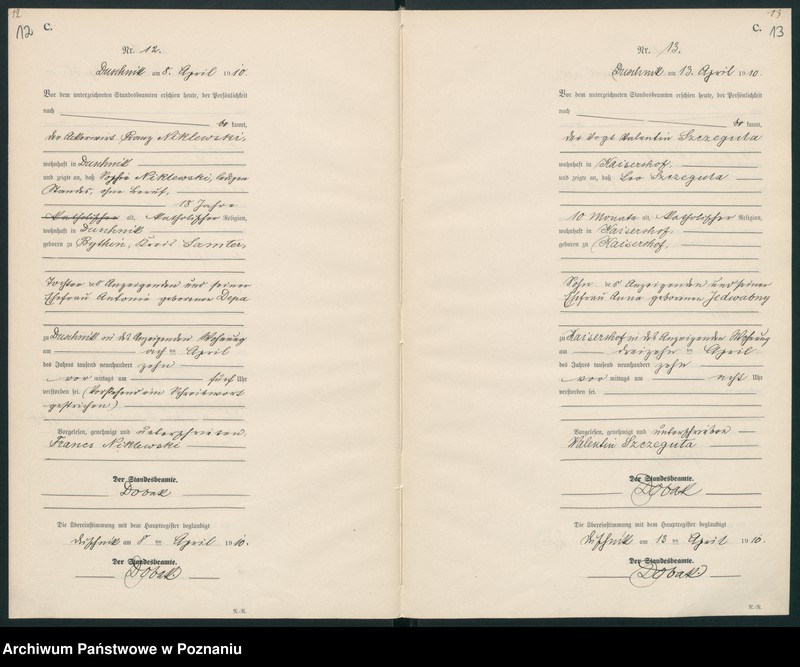 12
12
C.
Nr. 12.
Duschnik am 8. April 1910.
Vor dem unterzeichneten Standesbeamten erschien heute, der Persönlichkeit
nach
be kannt,
der Ackerwirt Franz Niklewski,
wohnhaft in Duschnik
und zeigte an, daß Sophie Niklewski, ledigen
Standes, ohne Beruf,
18 Jahre
Katholischer alt, Katholischer Religion,
wohnhaft in Duschnik
geboren zu Bythin, Kreis Samter,
Tochter des Anzeigenden und seiner
Ehefrau Antonie geborenen Depa
zu Duschnik in des Anzeigenden Wohnung
am acht ten April
des Jahres tausend neunhundert zehn
vor mittags um fünf Uhr
verstorben sei. (Vorstehend ein Schreibwort
gestrichen)
Vorgelesen, genehmigt und unterschrieben.
Francs Niklewski
Der Standesbeamte.
Dobak
Die Übereinstimmung mit dem Hauptregister beglaubigt
Duschnik am 8 ten April 1910.
Der Standesbeamte.
Dobak
R.-R.
13
C.
13
Nr. 13.
Duschnik am 13. April 1910.
Vor dem unterzeichneten Standesbeamten erschien heute, der Persönlichkeit
nach
be kannt,
der Vogt Valentin Szczeguta
wohnhaft in Kaiserhof
und zeigte an, daß Leo Szczeguta
10 Monate alt, Katholischer Religion,
wohnhaft in Kaiserhof
geboren zu Kaiserhof,
Sohn des Anzeigenden und seiner
Ehefrau Anna geborenen Jedwabny
zu Kaiserhof in des Anzeigenden Wohnung
am dreizehn ten April
des Jahres tausend neunhundert zehn
vor mittags um acht Uhr
verstorben sei.
Vorgelesen, genehmigt und unterschrieben
Valentin Szczeguta
Der Standesbeamte.
Dobak
Die Übereinstimmung mit dem Hauptregister beglaubigt
Duschnik am 13 ten April 1910.
Der Standesbeamte.
Dobak
R.-R.
Archiwum Państwowe w Poznaniu